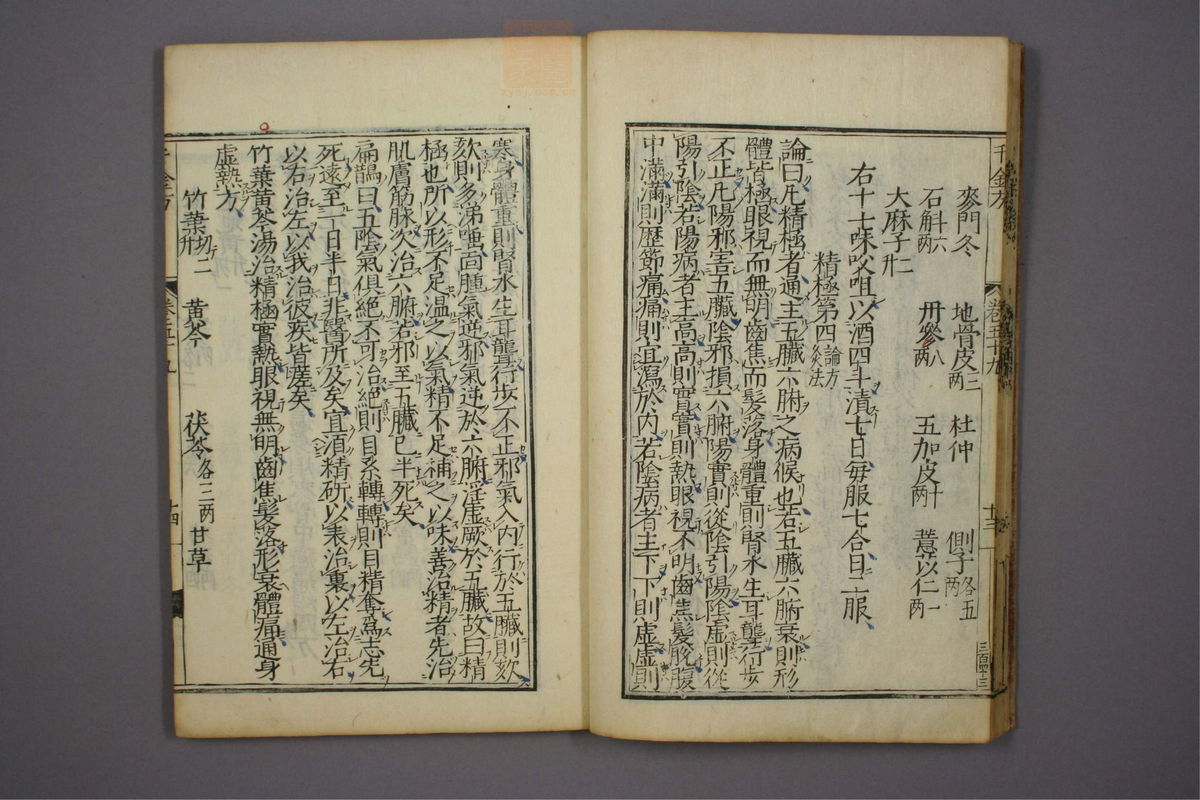 千金方
卷五十九
十三
三百四十三
麥門冬 地骨皮二两 杜仲 側子各五两
石斛六两 丹參八两 五加皮十两 薏苡仁一
大麻子二升
右十七味㕮咀以酒四斗漬七日每服七合日二服
精極第四論方灸法
論曰凡精極者通主五臟六腑之病候也若五臟六腑衰則形
體皆極眼視而無明齒焦而髮落身體重則腎水生耳聾行步
不正凡陽邪害五臟陰邪損六腑陽實則從陰引陽陰虛則從
陽引陰若陽病者主高高則實實則熱眼視不明齒焦髮脫腹
中滿滿則歷節痛痛則宜瀉於內若陰病者主下下則虛虛則
寒身體重則腎水生耳聾行步不正邪氣入內行於五臟則欬
欬則多涕唾面腫氣逆邪氣逆於六腑淫虛厥於五臟故曰精
極也所以形不足温之以氣精不足補之以味善治精者先治
肌膚筋脉次治六腑若邪至五臟已半死矣
扁鵲曰五陰氣俱絕不可治絕則目系轉轉則目精奪爲志先
死遠至一日半日非醫所及矣宜須精研以表治裏以左治右
以右治左以我治彼疾皆瘥矣
竹葉黃芩湯治精極實熱眼視無明齒焦髮落形衰體痛通身
虛熱方
竹葉切二升 黃芩 茯苓各三两 甘草
千金方
卷五十九
十四